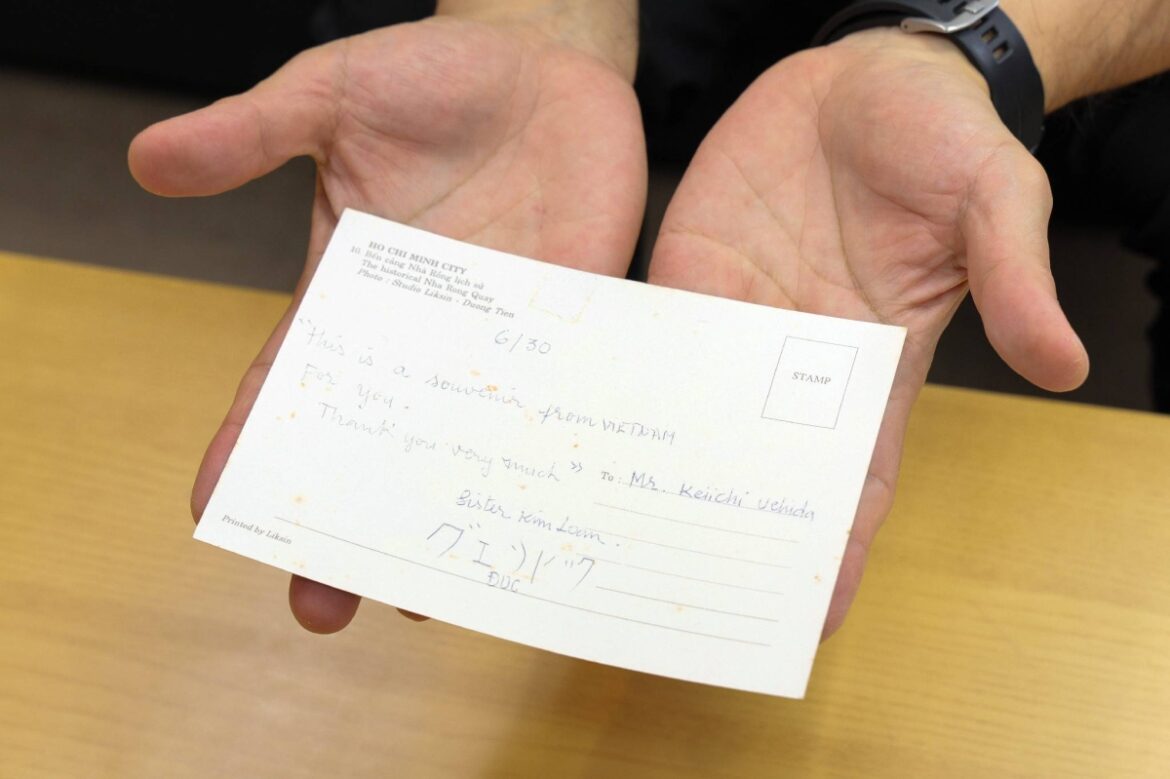 HO CHI MINH CITY
10. Bến cảng Nhà Rồng lịch sử
The historical Nha Rong Quay
Photo : Studio Liksin - Duong Tien
6/30
STAMP
"This is a souvenir from VIETNAM
For you.
Thank you very much »
To : Mr. Keiichi Uehida
Sister Kim Lam.
ĐUC
Printed by Liksin